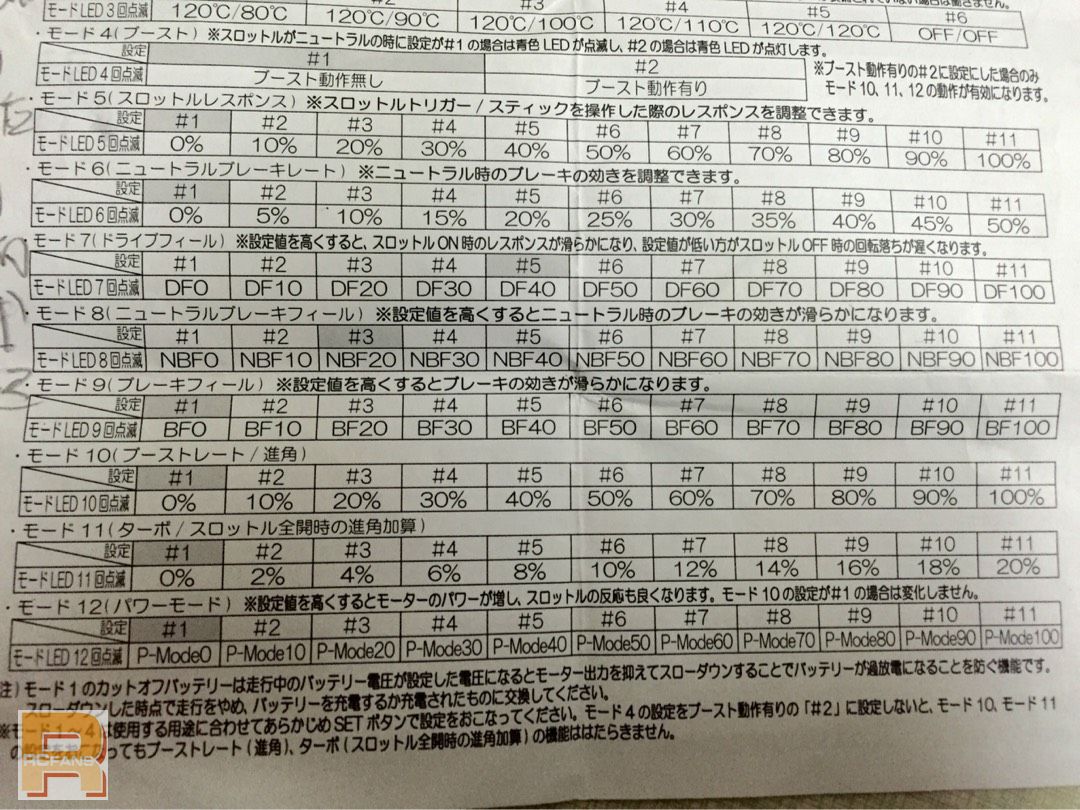 #3 #4 #5 #6
モードLED 3回点滅 120℃/80℃ 120℃/90℃ 120℃/100℃ 120℃/110℃ 120℃/120℃ OFF/OFF
・モード4(ブースト) ※スロットルがニュートラルの時に設定が#1の場合は青色LEDが点滅し、#2の場合は青色LEDが点灯します。
設定 #1 #2
モードLED 4回点滅 ブースト動作無し ブースト動作有り
※ブースト動作有りの#2に設定にした場合のみ
モード10、11、12の動作が有効になります。
・モード5(スロットルレスポンス) ※スロットルトリガー/スティックを操作した際のレスポンスを調整できます。
設定 #1 #2 #3 #4 #5 #6 #7 #8 #9 #10 #11
モードLED 5回点滅 0% 10% 20% 30% 40% 50% 60% 70% 80% 90% 100%
・モード6(ニュートラルブレーキレート) ※ニュートラル時のブレーキの効きを調整できます。
設定 #1 #2 #3 #4 #5 #6 #7 #8 #9 #10 #11
モードLED 6回点滅 0% 5% 10% 15% 20% 25% 30% 35% 40% 45% 50%
モード7(ドライブフィール) ※設定値を高くすると、スロットルON時のレスポンスが滑らかになり、設定値が低い方がスロットルOFF時の回転落ちが遅くなります。
設定 #1 #2 #3 #4 #5 #6 #7 #8 #9 #10 #11
モードLED 7回点滅 DF0 DF10 DF20 DF30 DF40 DF50 DF60 DF70 DF80 DF90 DF100
・モード8(ニュートラルブレーキフィール) ※設定値を高くするとニュートラル時のブレーキの効きが滑らかになります。
設定 #1 #2 #3 #4 #5 #6 #7 #8 #9 #10 #11
モードLED 8回点滅 NBF0 NBF10 NBF20 NBF30 NBF40 NBF50 NBF60 NBF70 NBF80 NBF90 NBF100
・モード9(ブレーキフィール) ※設定値を高くするとブレーキの効きが滑らかになります。
設定 #1 #2 #3 #4 #5 #6 #7 #8 #9 #10 #11
モードLED 9回点滅 BF0 BF10 BF20 BF30 BF40 BF50 BF60 BF70 BF80 BF90 BF100
・モード10(ブーストレート/進角)
設定 #1 #2 #3 #4 #5 #6 #7 #8 #9 #10 #11
モードLED 10回点滅 0% 10% 20% 30% 40% 50% 60% 70% 80% 90% 100%
・モード11(ターボ/スロットル全開時の進角加算)
設定 #1 #2 #3 #4 #5 #6 #7 #8 #9 #10 #11
モードLED 11回点滅 0% 2% 4% 6% 8% 10% 12% 14% 16% 18% 20%
・モード12(パワーモード) ※設定値を高くするとモーターのパワーが増し、スロットルの反応も良くなります。モード10の設定が#1の場合は変化しません。
設定 #1 #2 #3 #4 #5 #6 #7 #8 #9 #10 #11
モードLED 12回点滅 P-Mode0 P-Mode10 P-Mode20 P-Mode30 P-Mode40 P-Mode50 P-Mode60 P-Mode70 P-Mode80 P-Mode90 P-Mode100
注)モード1のカットオフバッテリーは走行中のバッテリー電圧が設定した電圧になるとモーター出力を抑えてスローダウンすることでバッテリーが過放電になることを防ぐ機能です。
スローダウンした時点で走行をやめ、バッテリーを充電するか充電されたものに交換してください。
※モード1~4は使用する用途に合わせてあらかじめSETボタンで設定をおこなってください。モード4の設定をブースト動作有りの「#2」に設定しないと、モード10、モード11
の設定をおこなってもブーストレート(進角)、ターボ(スロットル全開時の進角加算)の機能ははたらきません。
RCFANS